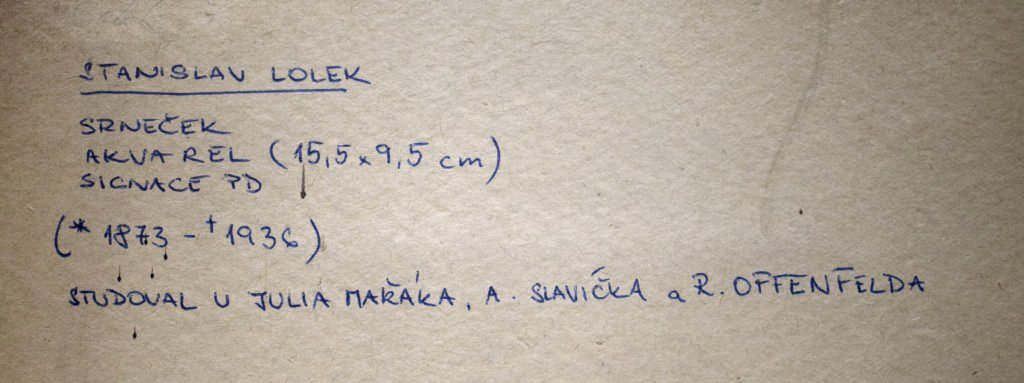 STANISLAV LOLEK
SRNEČEK
AKVAREL (15,5 x 9,5 cm)
SIGNACE PD
(* 1873 - † 1936)
STUDOVAL U JULIA MAŘÁKA, A. SLAVÍČKA a R. OFFENFELDA